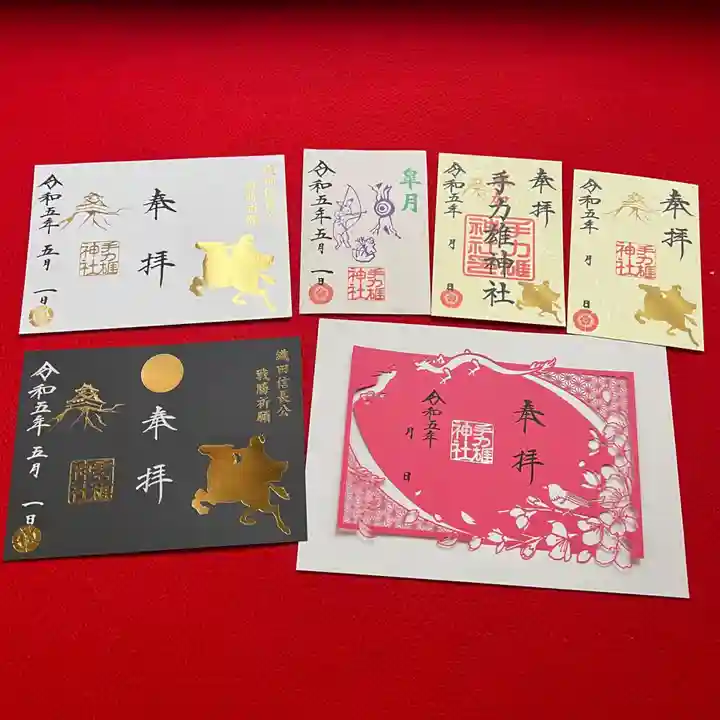 織田信長公
戦勝祈願
奉拝
手力雄
神社
令和五年 五月 一日
皐月
手力雄
神社
令和五年 五月 一日
奉拝
手力雄神社
手力雄
神社印
令和五年 月 日
奉拝
手力雄
神社
令和五年 月 日
織田信長公
戦勝祈願
奉拝
手力雄
神社
令和五年 五月 一日
奉拝
手力雄
神社
令和五年 月 日